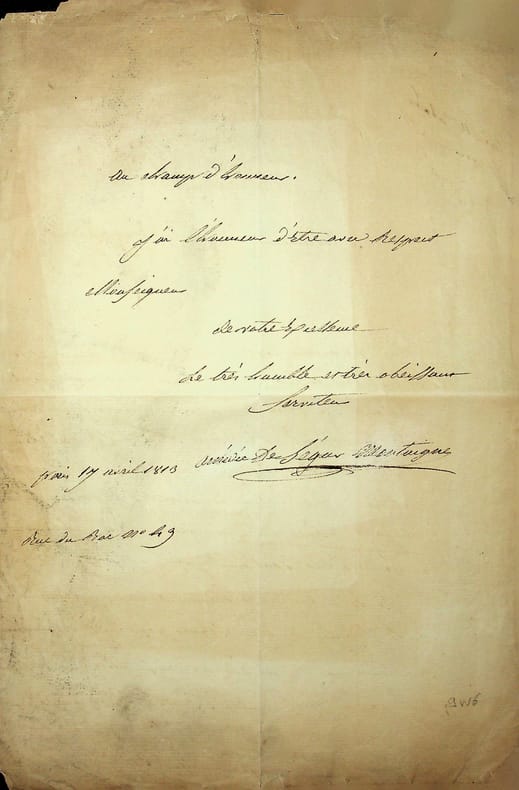 au champ d'honneur.
j'ai l'honneur d'être avec Respect
Monseigneur
de votre Excellence
Le très humble et très obeissant
Serviteur
De Ségur Montaigne
paris 17 avril 1813
Rue du Bac N° 43